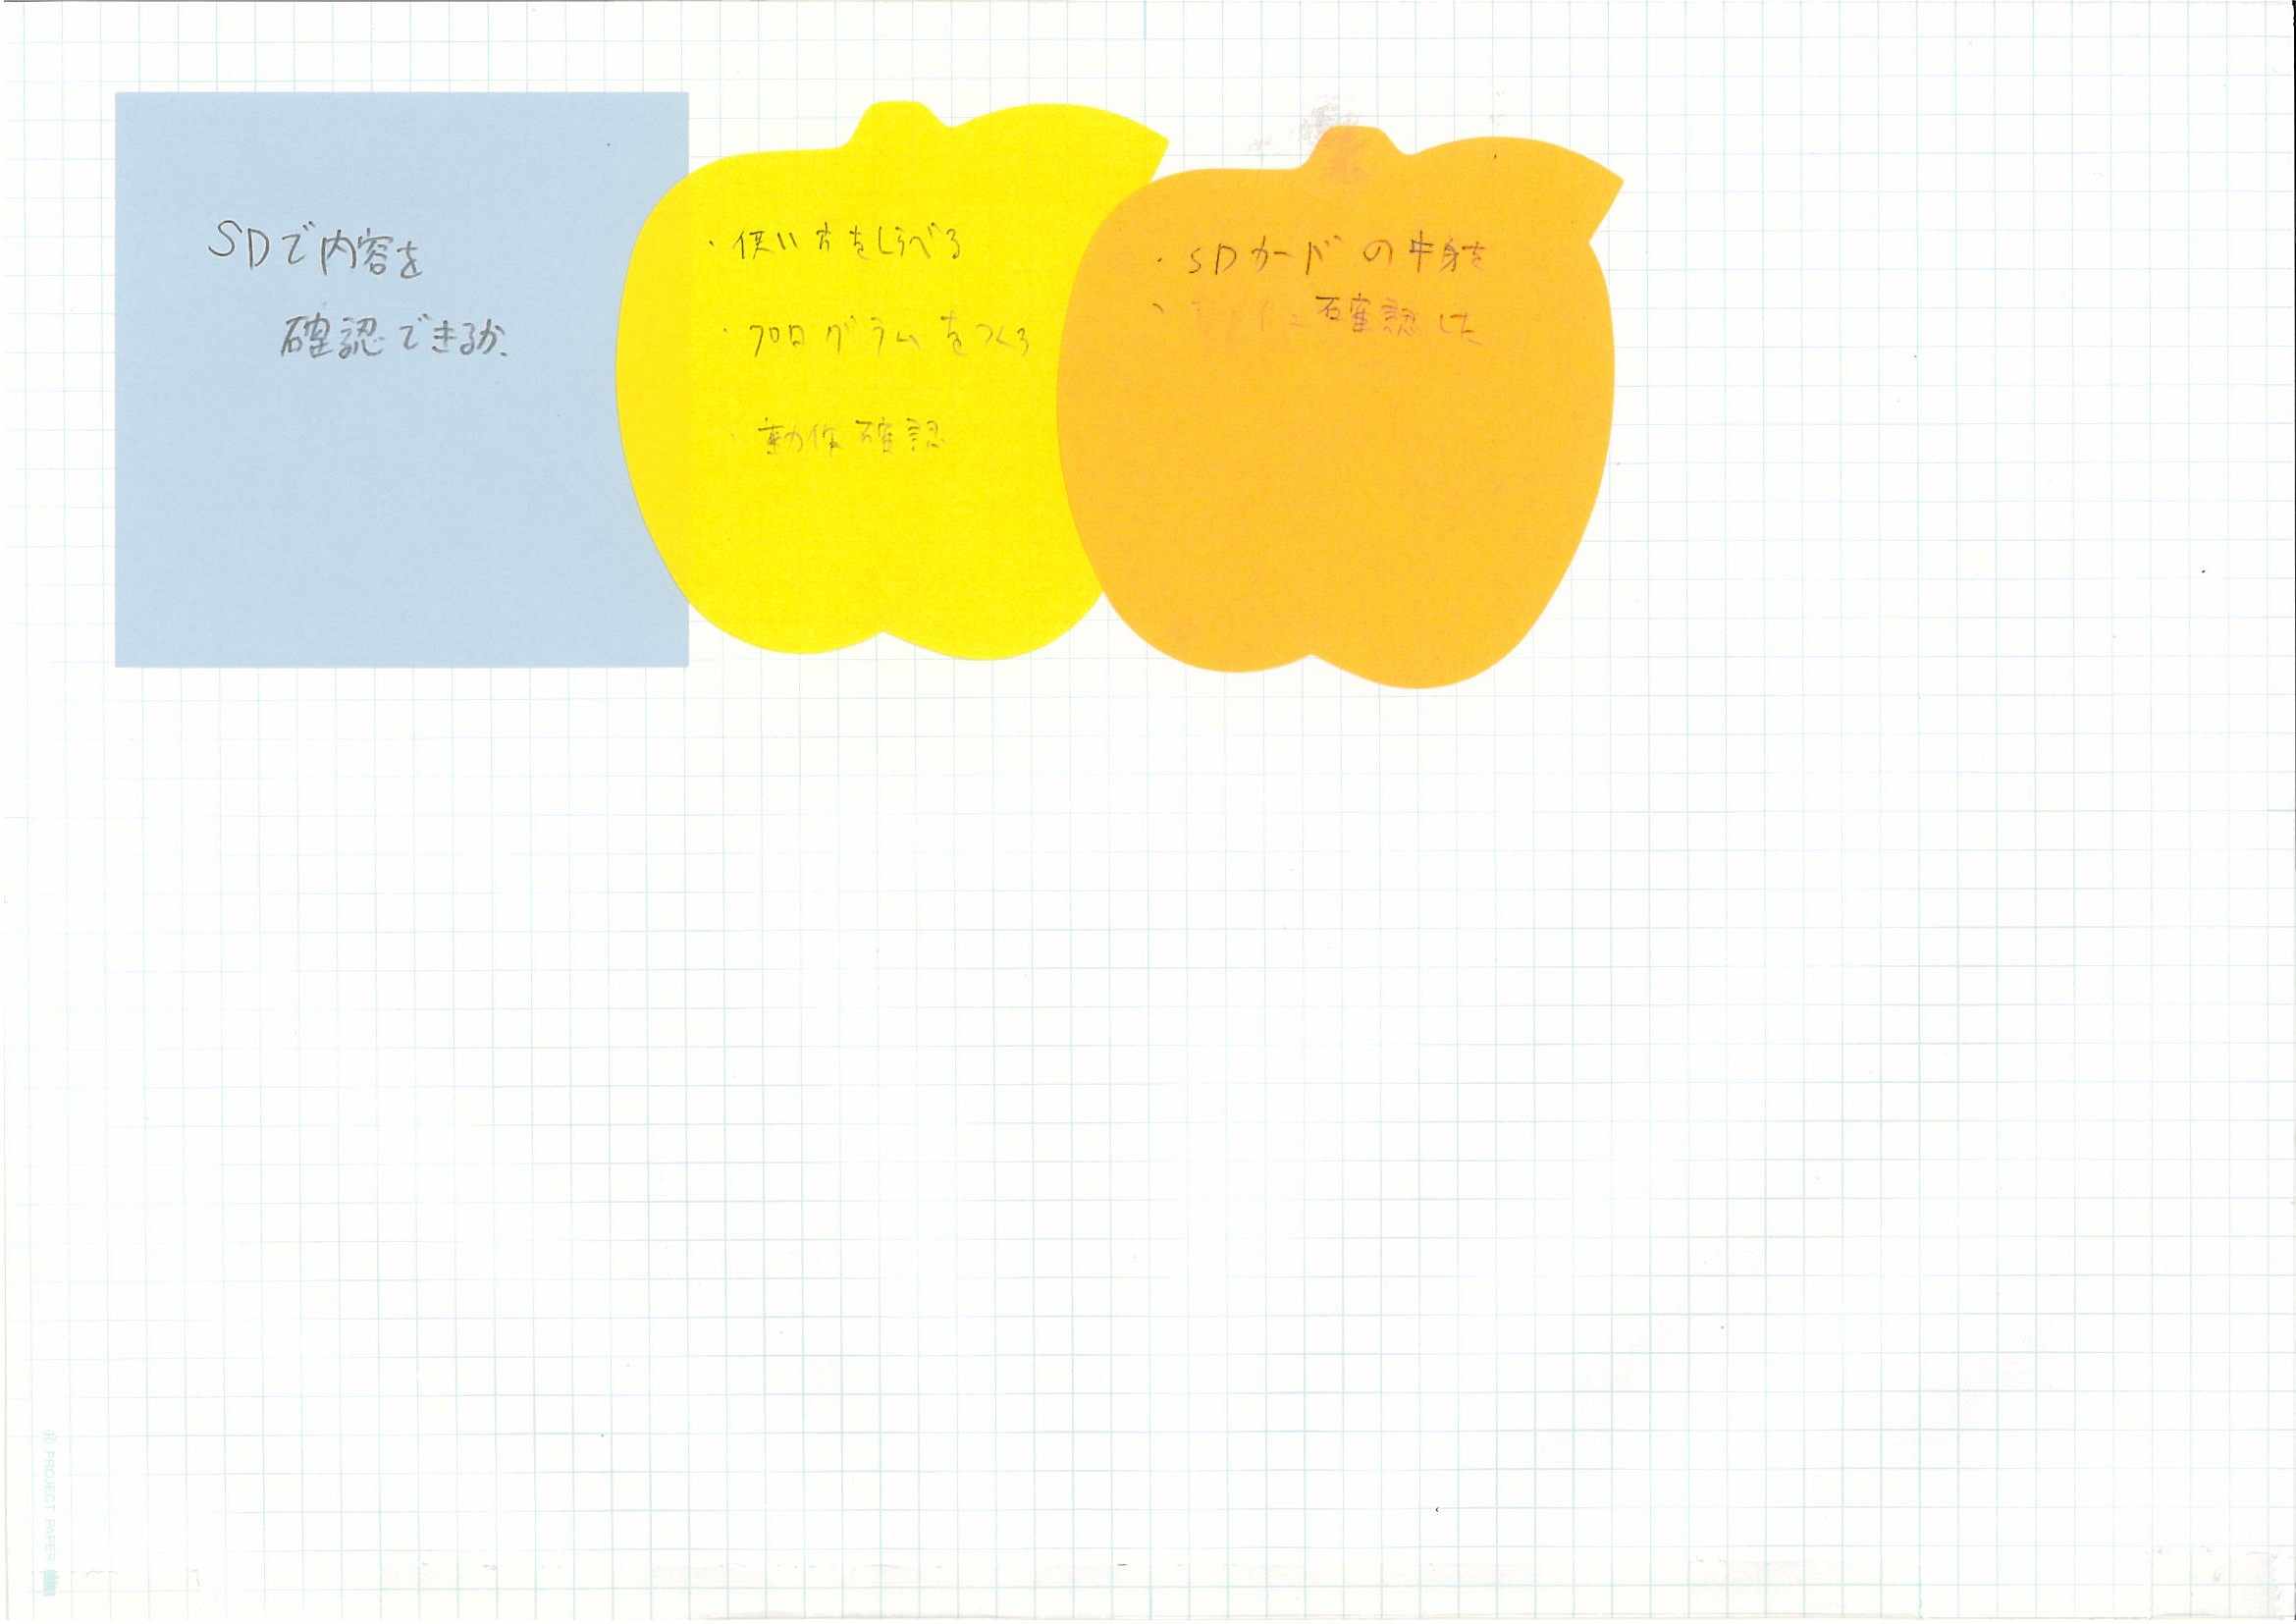 SDで内容を
確認できるか.
・使い方をしらべる
・プログラムをつくる
・動作確認
・SDカードの中身を
確認した
PROJECT PAPER